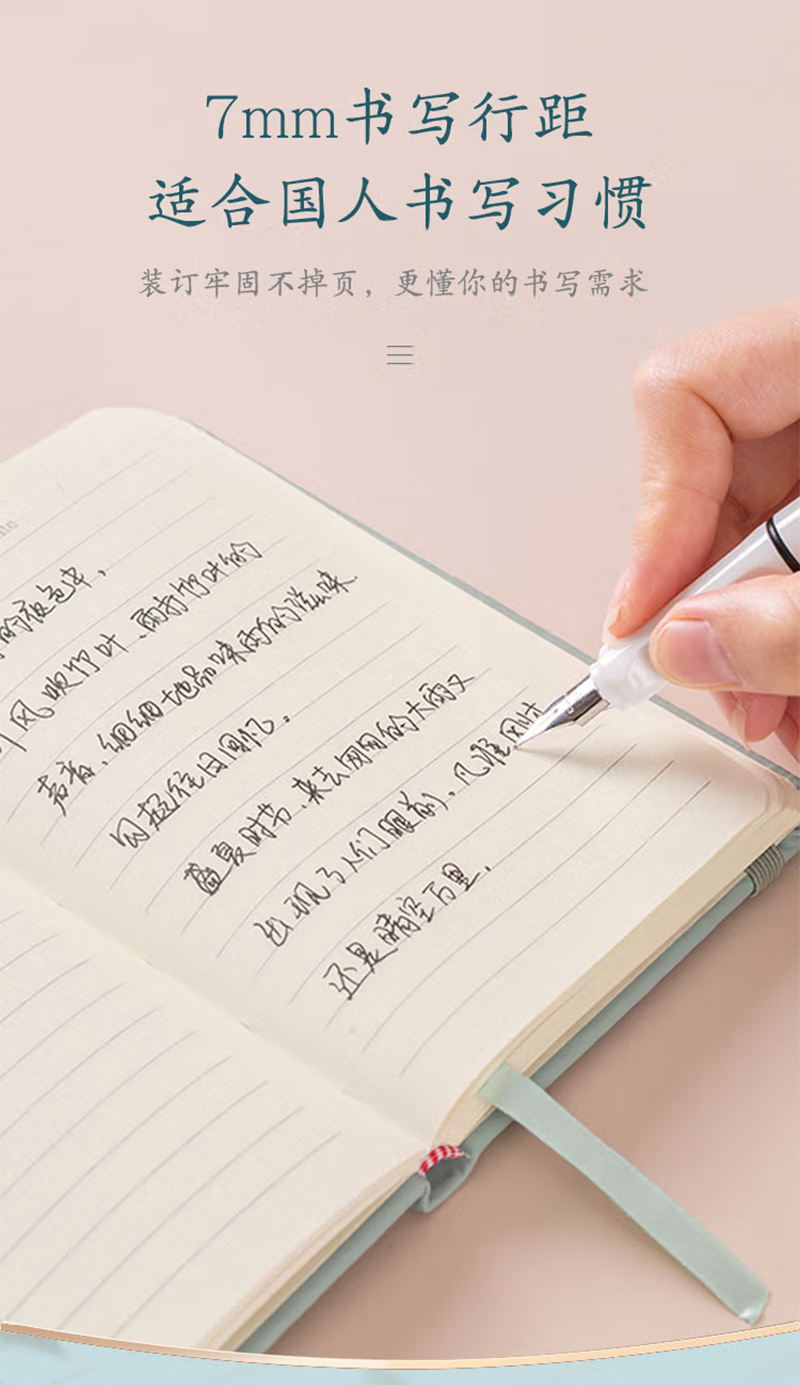 7mm书写行距
适合国人书写习惯
装订牢固不掉页，更懂你的书写需求
的夜色中，
风吹竹叶、雨打竹叶的
声音、细细地品味雨的滋味
回想往日回忆。
盛夏时节、来去匆匆的大雨又
出现了人们眼前。几滩雨
还是晴空万里。